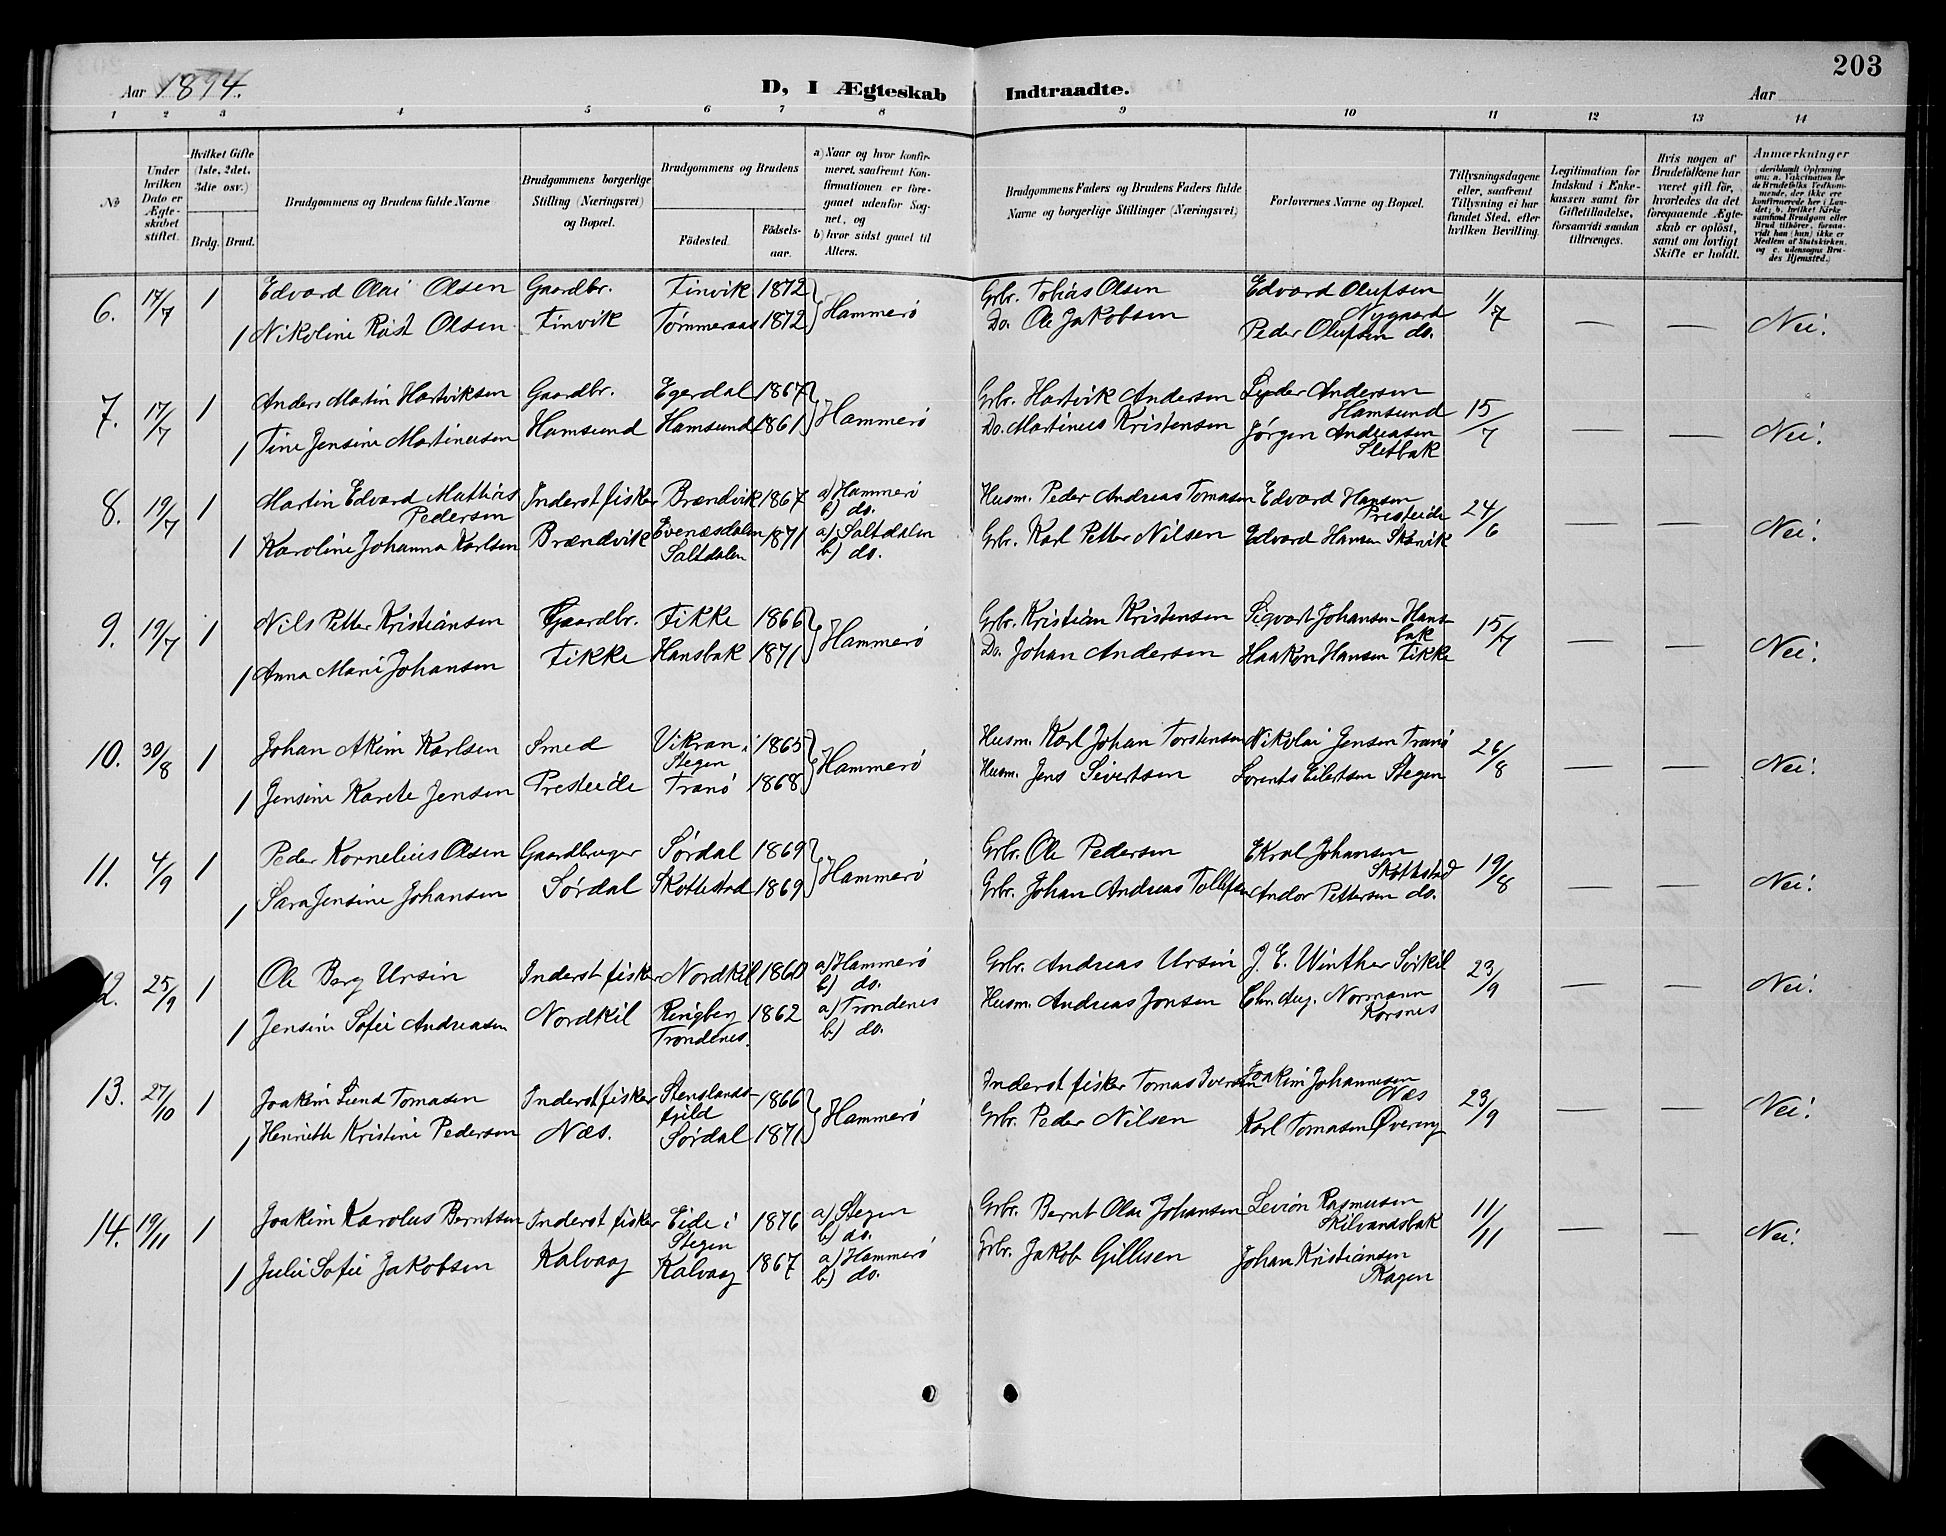 203
Aar 1894.
D, I Ægteskab Indtraadte.
Aar
1 2 3 4 5 6 7 8 9 10 11 12 13 14
№
Under hvilken Dato er Ægteskabet stiftet.
Hvilket Gifte (1ste, 2det, 3die osv.)
Brdg. Brud.
Brudgommens og Brudens fulde Navne
Brudgommens borgerlige Stilling (Næringsvei) og Bopæl.
Brudgommens og Brudens
Födested. Födselsaar.
a) Naar og hvor konfirmeret, saafremt Konfirmationen er foregaaet udenfor Sognet, og
b) hvor sidst gaaet til Alters.
Brudgommens Faders og Brudens Faders fulde Navne og borgerlige Stillinger (Næringsvei)
Forlovernes Navne og Bopæl.
Tillysningsdagene eller, saafremt Tillysning ei har fundet Sted, efter hvilken Bevilling.
Legitimation for Indskud i Enkekassen samt for Giftetilladelse, forsaavidt saadan tiltrænges.
Hvis nogen af Brudefolkene har været gift för, hvorledes da det foregaaende Ægteskab er oplöst, samt om lovligt Skifte er holdt.
Anmærkninger (deriblandt Oplysning om: a. Vakcination for de Brudefolks Vedkommende, der ikke ere konfirmerede her i Landet; b. hvilket Kirkesamfund Brudgom eller Brud tilhörer, forsaavidt han (hun) ikke er Medlem af Statskirken, og c. udensogns Brudes Hjemsted.)
6. 17/7 1 Edvard Olai Olsen Gaardbr. Finvik 1872 } Hammerö Grbr. Tobias Olsen Edvard Olufsen Nygaard 1/7 — — Nei.
1 Nikoline Röst Olsen Finvik Tömmeraas 1872 Do. Ole Jakobsen Peder Olufsen do.
7. 17/7 1 Anders Martin Hartviksen Gaardbr. Egerdal 1867 } Hammerö Grbr. Hartvik Andersen Lyder Andersen Hamsund 15/7 — — Nei.
1 Tine Jensine Martinusen Hamsund Hamsund 1861 Do. Martinus Kristensen Jörgen Andreasen Sletbak
8. 19/7 1 Martin Edvard Mathias Pedersen Inderst fisker Brændvik 1867 a) Hammerö b) do. Husm. Peder Andreas Tomasen Edvard Hansen Presteide 24/6 — — Nei.
1 Karoline Johanna Karlsen Brændvik Evenæsdalen Saltdalen 1871 a) Saltdalen b) do. Grbr. Karl Petter Nilsen Edvard Hansen Skarvik
9. 19/7 1 Nils Petter Kristiansen Gaardbr. Fikke 1866 } Hammerö Grbr. Kristian Kristensen Sigvart Johansen Hansbak 15/7 — — Nei.
1 Anna Marie Johansen Fikke Hansbak 1871 Do. Johan Andersen Haakon Hansen Fikke
10. 30/8 1 Johan Akim Karlsen Smed Vikran i Stegen 1865 } Hammerö Husm. Karl Johan Torstensen Nikolai Jensen Tranö 26/8 — — Nei.
1 Jensine Karete Jensen Presteide Tranö 1868 Husm. Jens Sivertsen Lorents Eilertsen Stegen
11. 4/9 1 Peder Kornelius Olsen Gaardbruger Sördal 1869 } Hammerö Grbr. Ole Pedersen Ekral Johansen Skottestad 19/8 — — Nei.
1 Sara Jensine Johansen Sördal Skottestad 1869 Grbr. Johan Andreas Tollefsen Andor Pettersen do.
12. 25/9 1 Ole Berg Ursin Inderst fisker Nordkil 1860 a) Hammerö b) do. Grbr. Andreas Ursin J. E. Winther Sörkil 23/9 — — Nei.
1 Jensine Sofie Andreasen Nordkil Ringberg Trondenes. 1862 a) Trondenes b) do. Husm. Andreas Jonsen Chr. Aug. Normann Korsnes
13. 27/10 1 Joakim Lund Tomasen Inderst fisker Stenslandsfjeld 1866 } Hammerö Inderst fisker Tomas Iversen Joakim Johannesen Næs 23/9 — — Nei.
1 Henriette Kristine Pedersen Næs. Sördal 1871 Grbr. Peder Nilsen Karl Tomasen Övereng
14. 19/11 1 Joakim Karolus Berntsen Inderst fisker Eide i Stegen 1876 a) Stegen b) do. Grbr. Bernt Olai Johansen Levion Rasmussen Skilvandsbak 11/11 — — Nei.
1 Julie Sofie Jakobsen Kalvaag Kalvaag 1867 a) Hammerö b) do. Grbr. Jakob Gillesen Johan Kristiansen Skagen